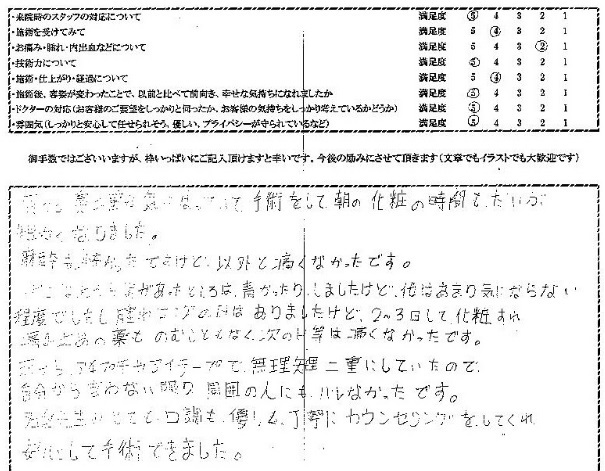 ・来院時のスタッフの対応について 満足度 5 4 3 2 1
・施術を受けてみて 満足度 5 4 3 2 1
・お痛み・腫れ・内出血などについて 満足度 5 4 3 2 1
・技術力について 満足度 5 4 3 2 1
・施術・仕上がり・経過について 満足度 5 4 3 2 1
・施術後、容姿が変わったことで、以前と比べて前向き、幸せな気持ちになれましたか 満足度 5 4 3 2 1
・ドクターの対応(お客様のご要望をしっかりと伺ったか、お客様の気持ちをしっかり考えているかどうか) 満足度 5 4 3 2 1
・雰囲気(しっかりと安心して任せられそう、優しい、プライバシーが守られているなど) 満足度 5 4 3 2 1
御手数ではございいますが、枠いっぱいにご記入頂けますと幸いです。今後の励みにさせて頂きます(文章でもイラストでも大歓迎です)
手術をして朝の化粧の時間で、だいぶ
なりました。
ですけど、以外と痛くなかったです。
があったところは、青かったり、しましたけど、他はあまり気にならない
程度でしたし はありましたけど、2~3日して化粧すれ
のむこともなく次の日等は痛くなかったです。
アイプチやアイテープで、無理矢理二重にしていたので、
自分から言わない限り周囲の人にも、バレなかったです。
とても、口調も、優しく、丁寧にカウンセリングをしてくれ
して手術できました。